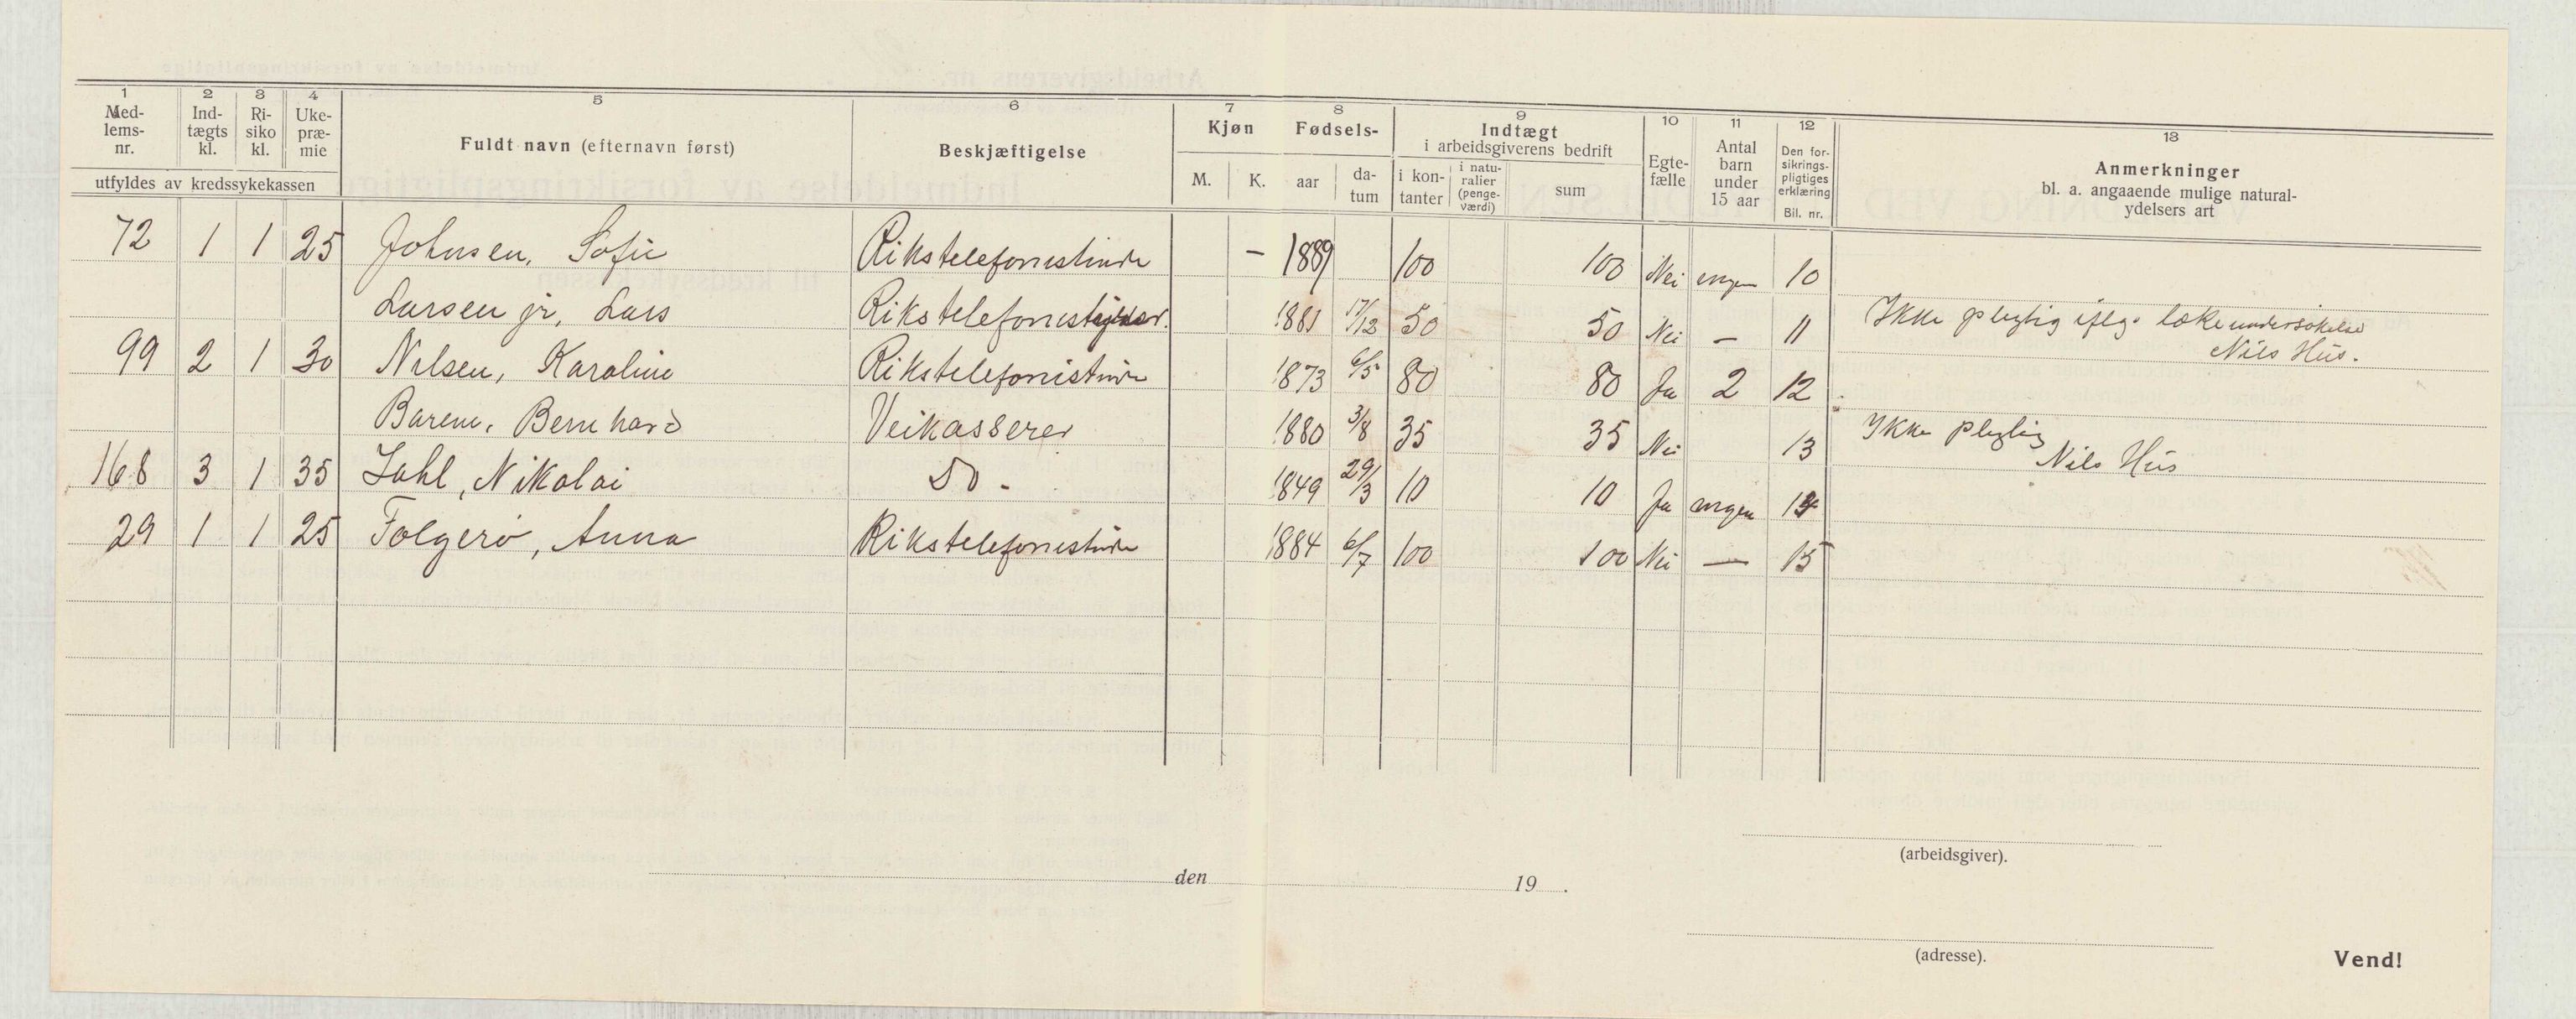 1 2 3 4 5 6 7 8 9 10 11 12 13
Med-lems-nr. Ind-tægts kl. Ri-siko kl. Uke-præ-mie Fuldt navn (efternavn først) Beskjæftigelse Kjøn Fødsels- Indtægt i arbeidsgiverens bedrift Egte-fælle Antal barn under 15 aar Den for-sikrings-pligtiges erklæring Bil. nr. Anmerkninger bl. a. angaaende mulige natural-ydelsers art
utfyldes av kredssykekassen M. K. aar da-tum i kon-tanter i natu-ralier (penge-værdi) sum
72 1 1 25 Johnsen, Sofie Rikstelefonistinde — 1889 100 100 Nei ingen 10
Larsen jr, Lars Rikstelefonbestyrer. 1881 17/12 50 50 Nei — 11 Ikke pligtig iflg. lækeundersøkelse
Nils Hus.
99 2 1 30 Nilsen, Karoline Rikstelefonistinde 1873 6/5 80 80 Ja 2 12
Barene, Bernhard Veikasserer 1880 3/8 35 35 Nei 13 Ikke pligtig
Nils Hus
168 3 1 35 Dahl, Nikolai Do - 1849 29/3 10 10 Ja ingen 14
29 1 1 25 Folgerø, Anna Rikstelefonistinde 1884 6/7 100 100 Nei — 15
(arbeidsgiver).
den 19 .
(adresse).
Vend!